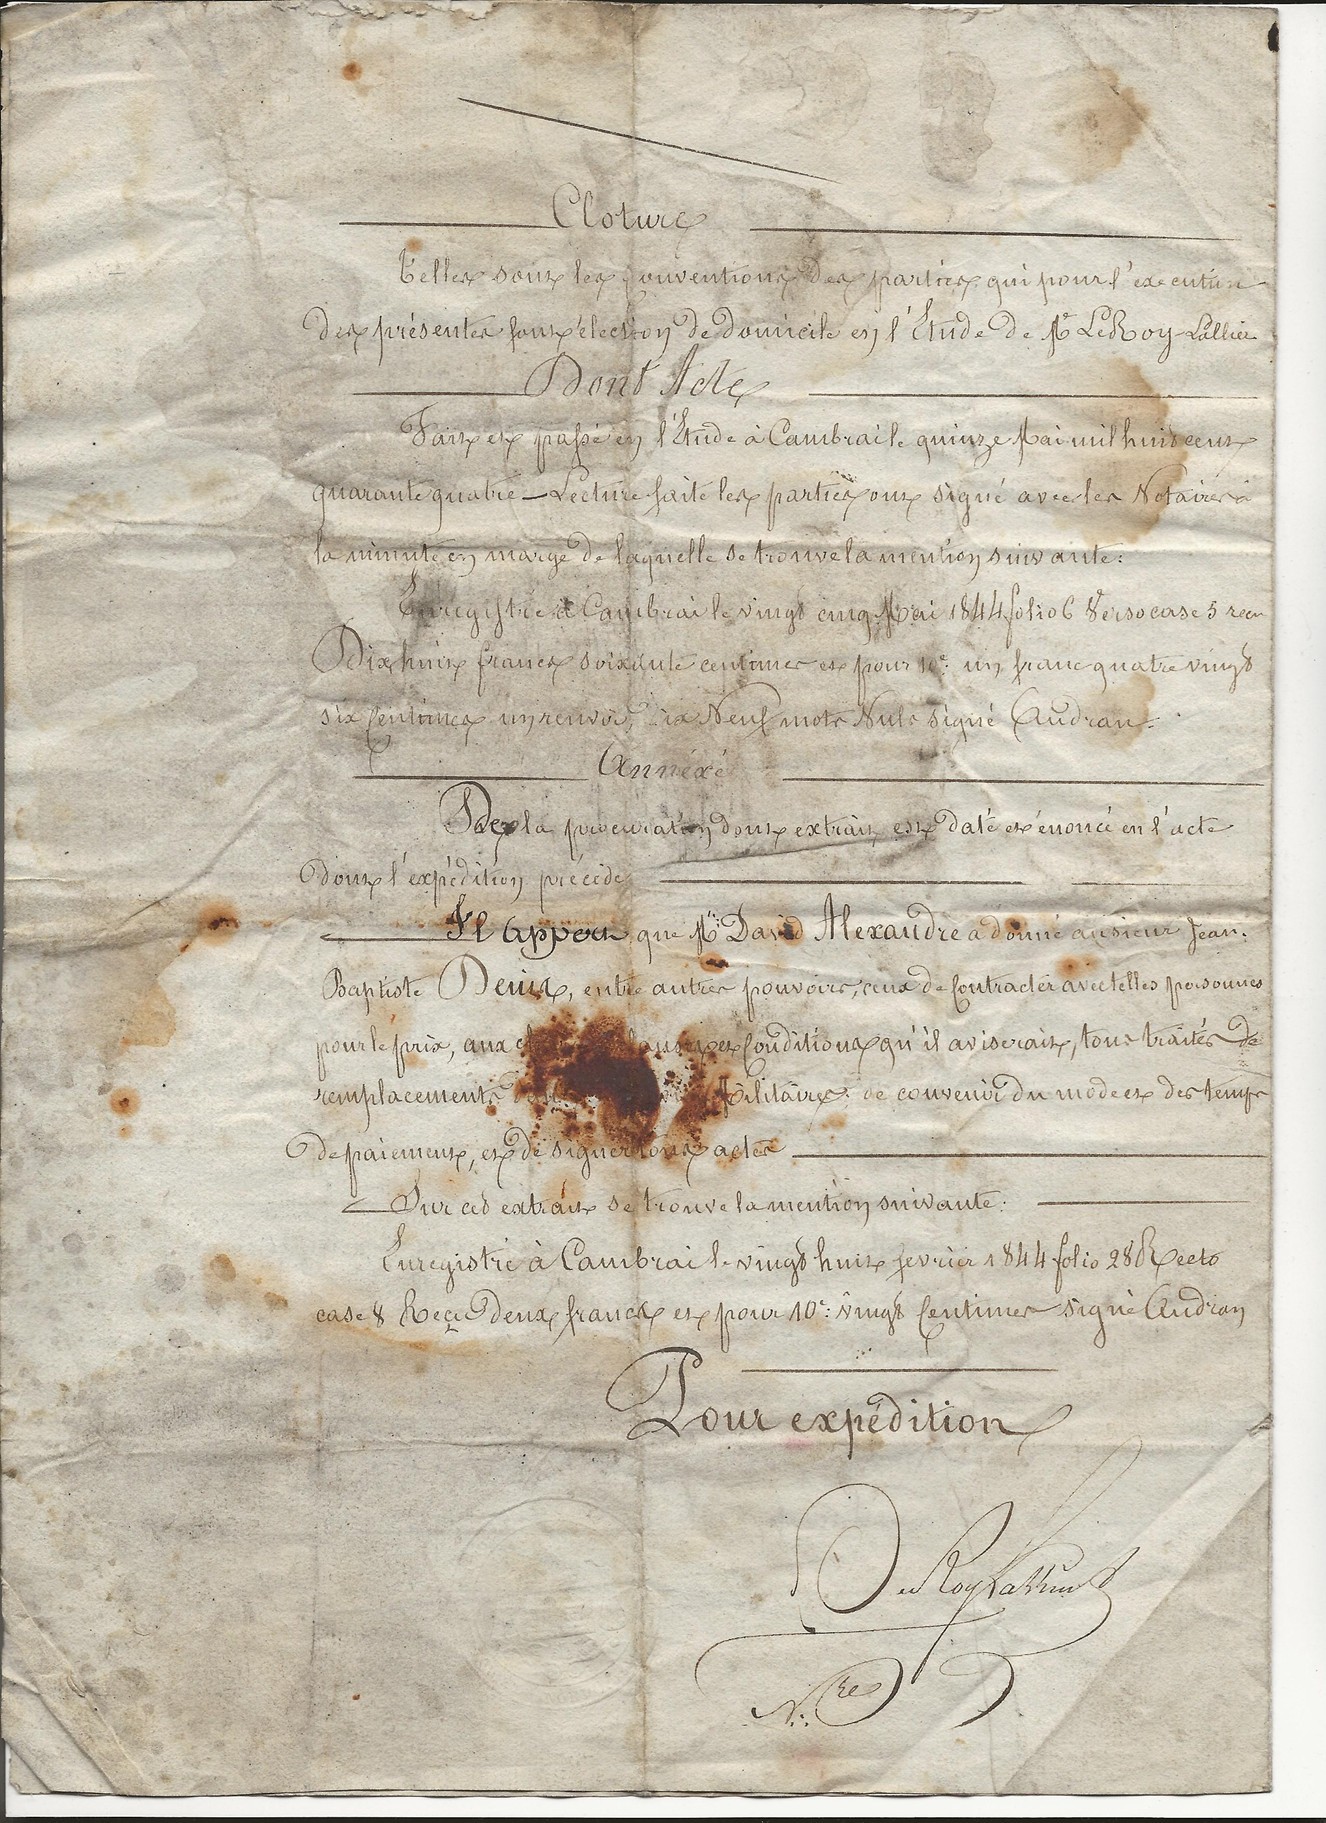 Cloture
Telles sont les conventions des parties qui pour l'exécution
des présentes font élection de domicile en l'Etude de Me LeRoy-Lallier
Dont Acte
Fait et passé en l'Etude à Cambrai le quinze Mai mil huit cent
quarante quatre — Lecture faite les parties ont signé avec les Notaires à
la minute en marge de laquelle se trouve la mention suivante:
Enregistré à Cambrai le vingt cinq Mai 1844 folio 6 Verso case 5 reçu
Dix huit francs soixante centimes et pour 10e: un franc quatre vingt
six Centimes un renvoi, dix Neuf mots Nuls signé Audran.
Annexé
De la procuration dont extrait est daté et énoncé en l'acte
dont l'expédition précède
Il Appert que Mr: David Alexandre a donné au sieur Jean-
Baptiste Denis, entre autres pouvoirs, ceux de Contracter avec telles personnes
pour le prix, aux et Conditions qu'il aviserait, tous traités de
remplacements Militaire: de convenir du mode et des temps
de paiement, et de signer tous actes
Sur ced extrait se trouve la mention suivante:
Enregistré à Cambrai le vingt huit fevrier 1844 folio 28 Recto
case 8 Reçu deux francs et pour 10e: vingt Centimes signé Audran
Pour expédition
LeRoy Lallier
Nre